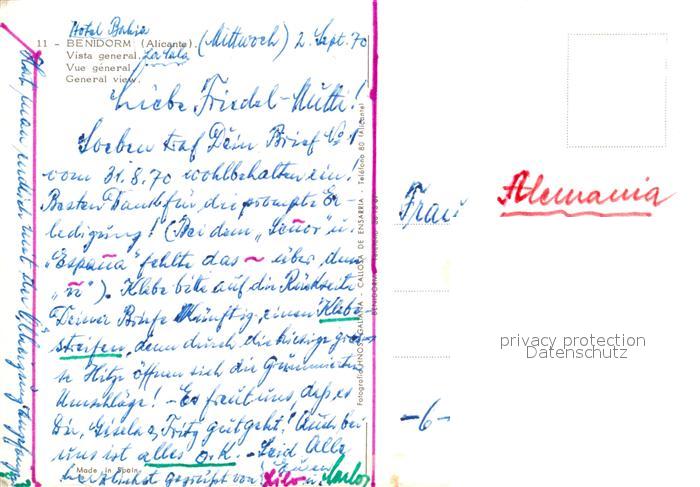 Hotel Bahia
11 - BENIDORM (Alicante) (Mittwoch) 2. Sept. 70
Vista general. La Cala
Vue géneral.
General view.
Liebe Friedel-Mutti!
Soeben traf Dein Brief No 1
vom 31.8.70 wohlbehalten ein!
Besten Dank für die prompte Er-
ledigung! (Bei dem "Señor" u.
"España" fehlte das ~ über dem
"ñ"). Klebe bitte auf die Rückseite
Deiner Briefe künftig einen Klebe-
streifen, denn durch die hiesige gros-
se Hitze öffnen sich die Gummierten
Umschläge! - Es freut uns, daß es
Dir, Gisela & Fritz gut geht! Auch bei
uns ist alles o.K. - Seid Alle
herzlichst gegrüßt von Euren
Lilo u. Carlos
Made in Spain
Hat man endlich mit der
Fotografia HNOS. GALIANA - CALLOSA DE ENSARRIA - Teléfono 80 (Alicante)
Alemania
Frau
-6-
privacy protection
Datenschutz